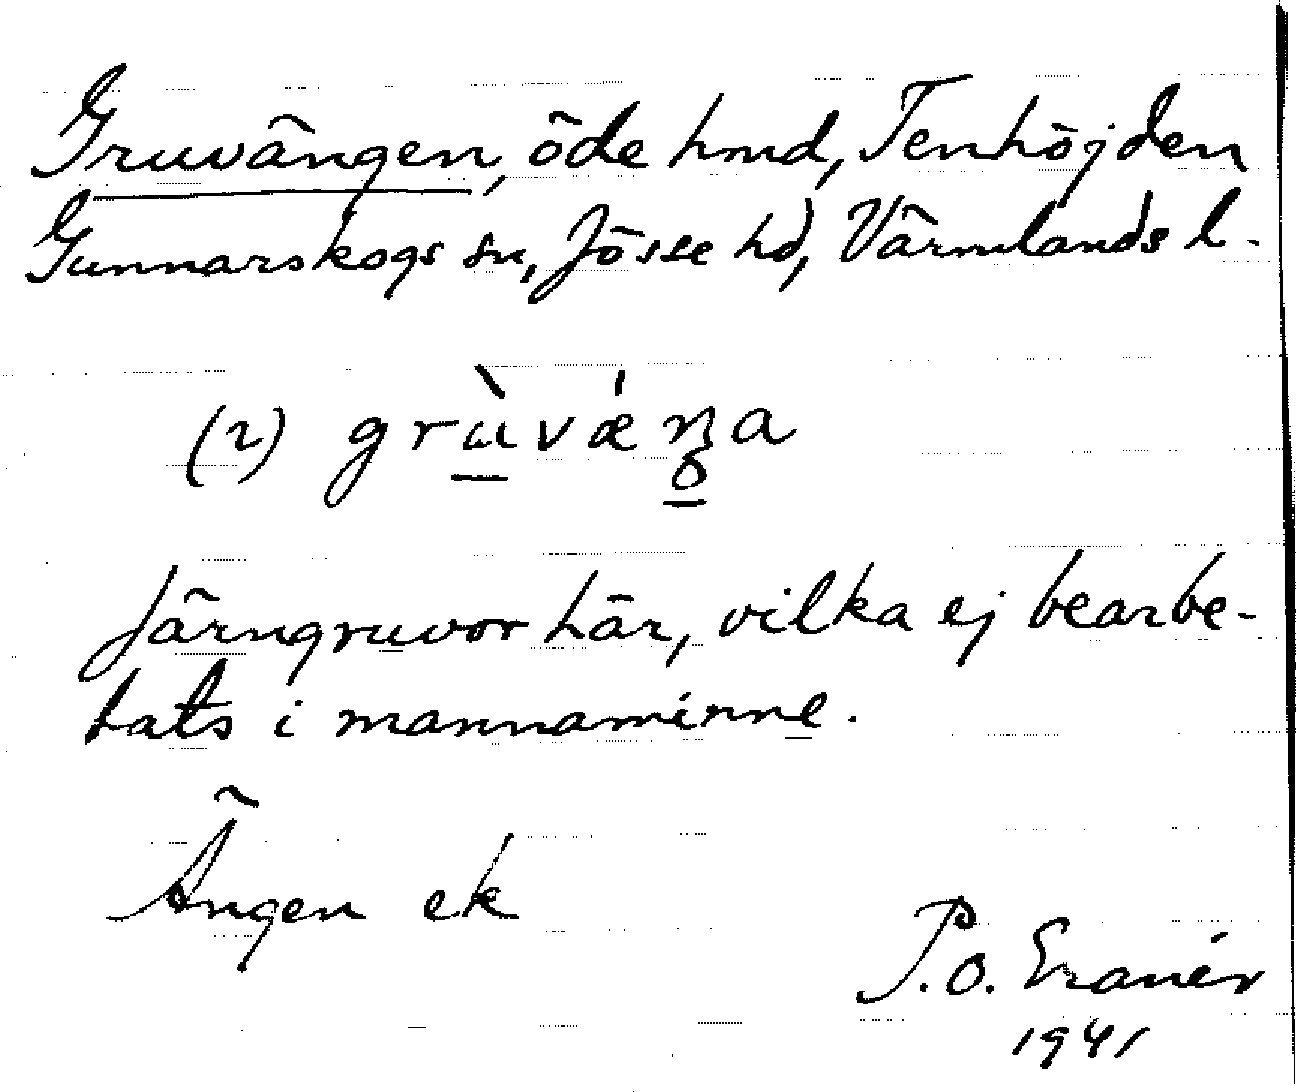 Gruvängen, öde hmd, Tenhöjden
Gunnarskogs sn, Jösse hd, Värmlands l.
(2) grùvǽŋa
Järngruvor här, vilka ej bearbe-
tats i mannaminne.
Ängen ek
P.O.
1941